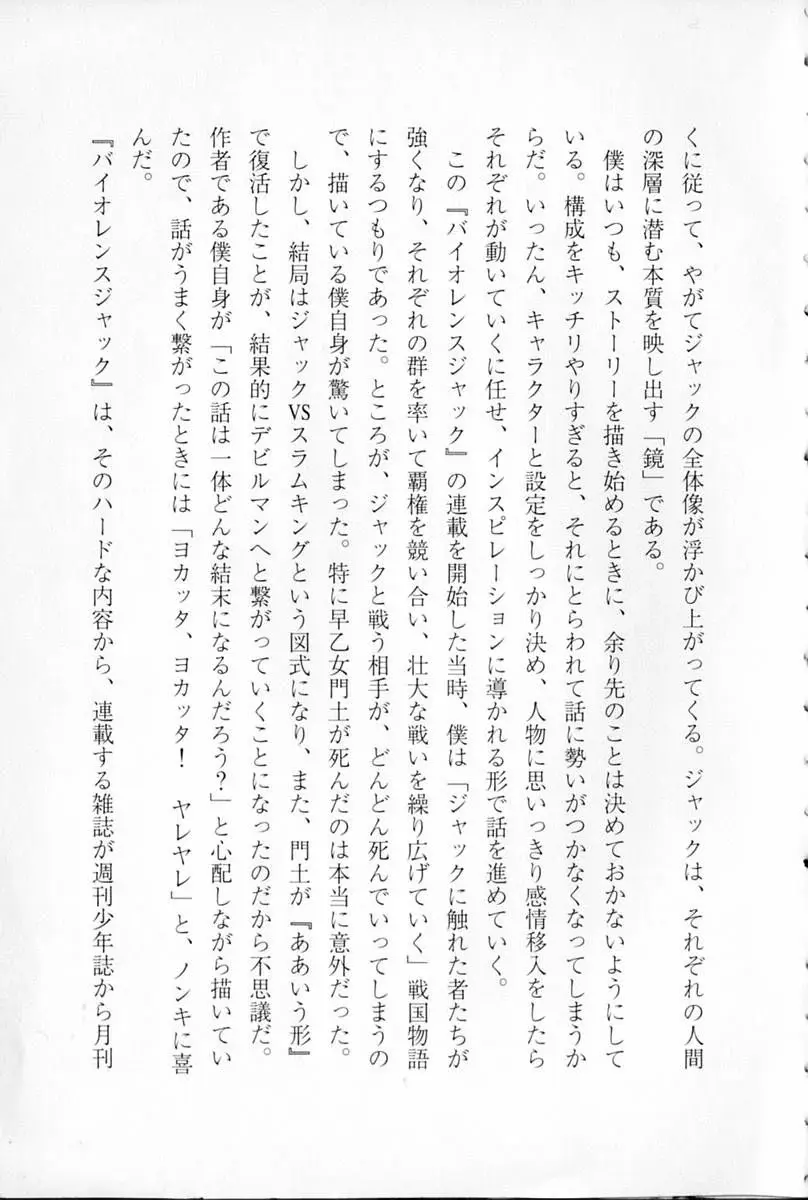 くに従って、やがてジャックの全体像が浮かび上がってくる。ジャックは、それぞれの人間
の深層に潜む本質を映し出す「鏡」である。
　僕はいつも、ストーリーを描き始めるときに、余り先のことは決めておかないようにして
いる。構成をキッチリやりすぎると、それにとらわれて話に勢いがつかなくなってしまうか
らだ。いったん、キャラクターと設定をしっかり決め、人物に思いっきり感情移入をしたら
それぞれが動いていくに任せ、インスピレーションに導かれる形で話を進めていく。
　この『バイオレンスジャック』の連載を開始した当時、僕は「ジャックに触れた者たちが
強くなり、それぞれの群を率いて覇権を競い合い、壮大な戦いを繰り広げていく」戦国物語
にするつもりであった。ところが、ジャックと戦う相手が、どんどん死んでいってしまうの
で、描いている僕自身が驚いてしまった。特に早乙女門土が死んだのは本当に意外だった。
　しかし、結局はジャックVSスラムキングという図式になり、また、門土が『ああいう形』
で復活したことが、結果的にデビルマンへと繋がっていくことになったのだから不思議だ。
作者である僕自身が「この話は一体どんな結末になるんだろう？」と心配しながら描いてい
たので、話がうまく繋がったときには「ヨカッタ、ヨカッタ！　ヤレヤレ」と、ノンキに喜
んだ。
『バイオレンスジャック』は、そのハードな内容から、連載する雑誌が週刊少年誌から月刊